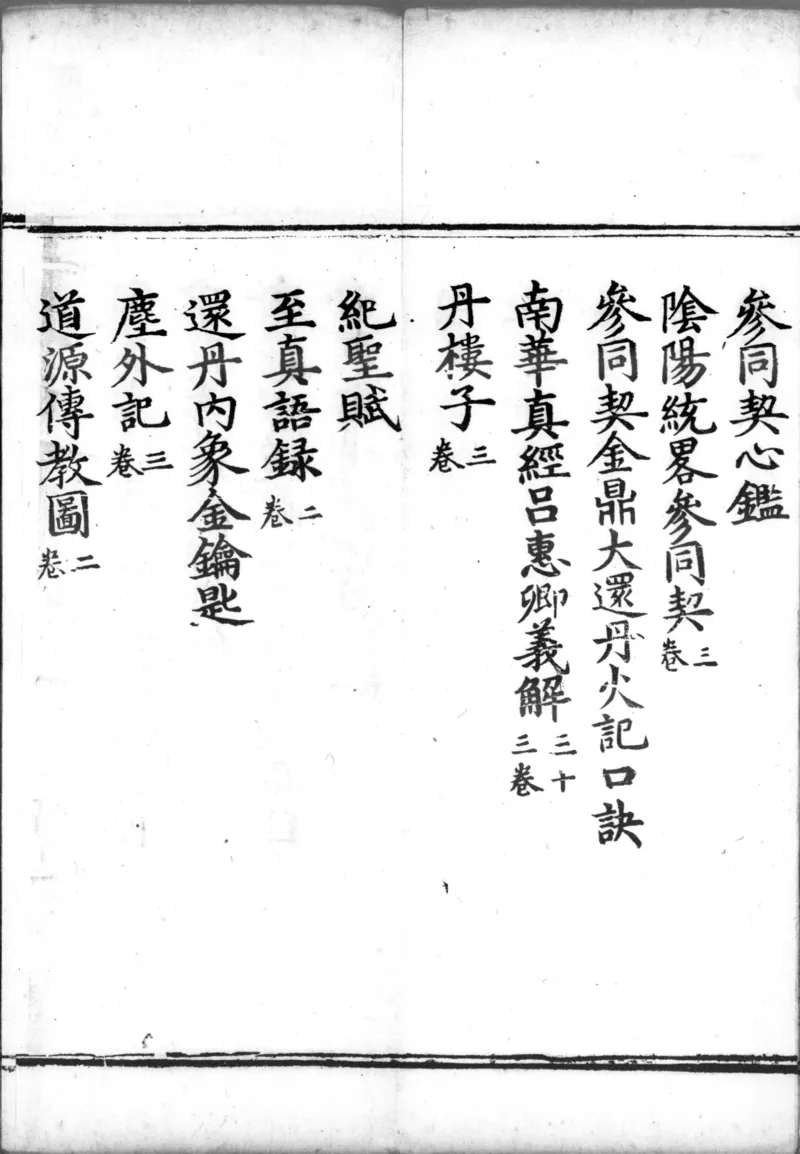 參同契心鑑
陰陽統畧參同契三卷
參同契金鼎大還丹火記口訣
南華真經呂惠卿義解三十三卷
丹樓子三卷
紀聖賦
至真語録二卷
還丹內象金鑰匙
塵外記三卷
道源傳教圖二卷